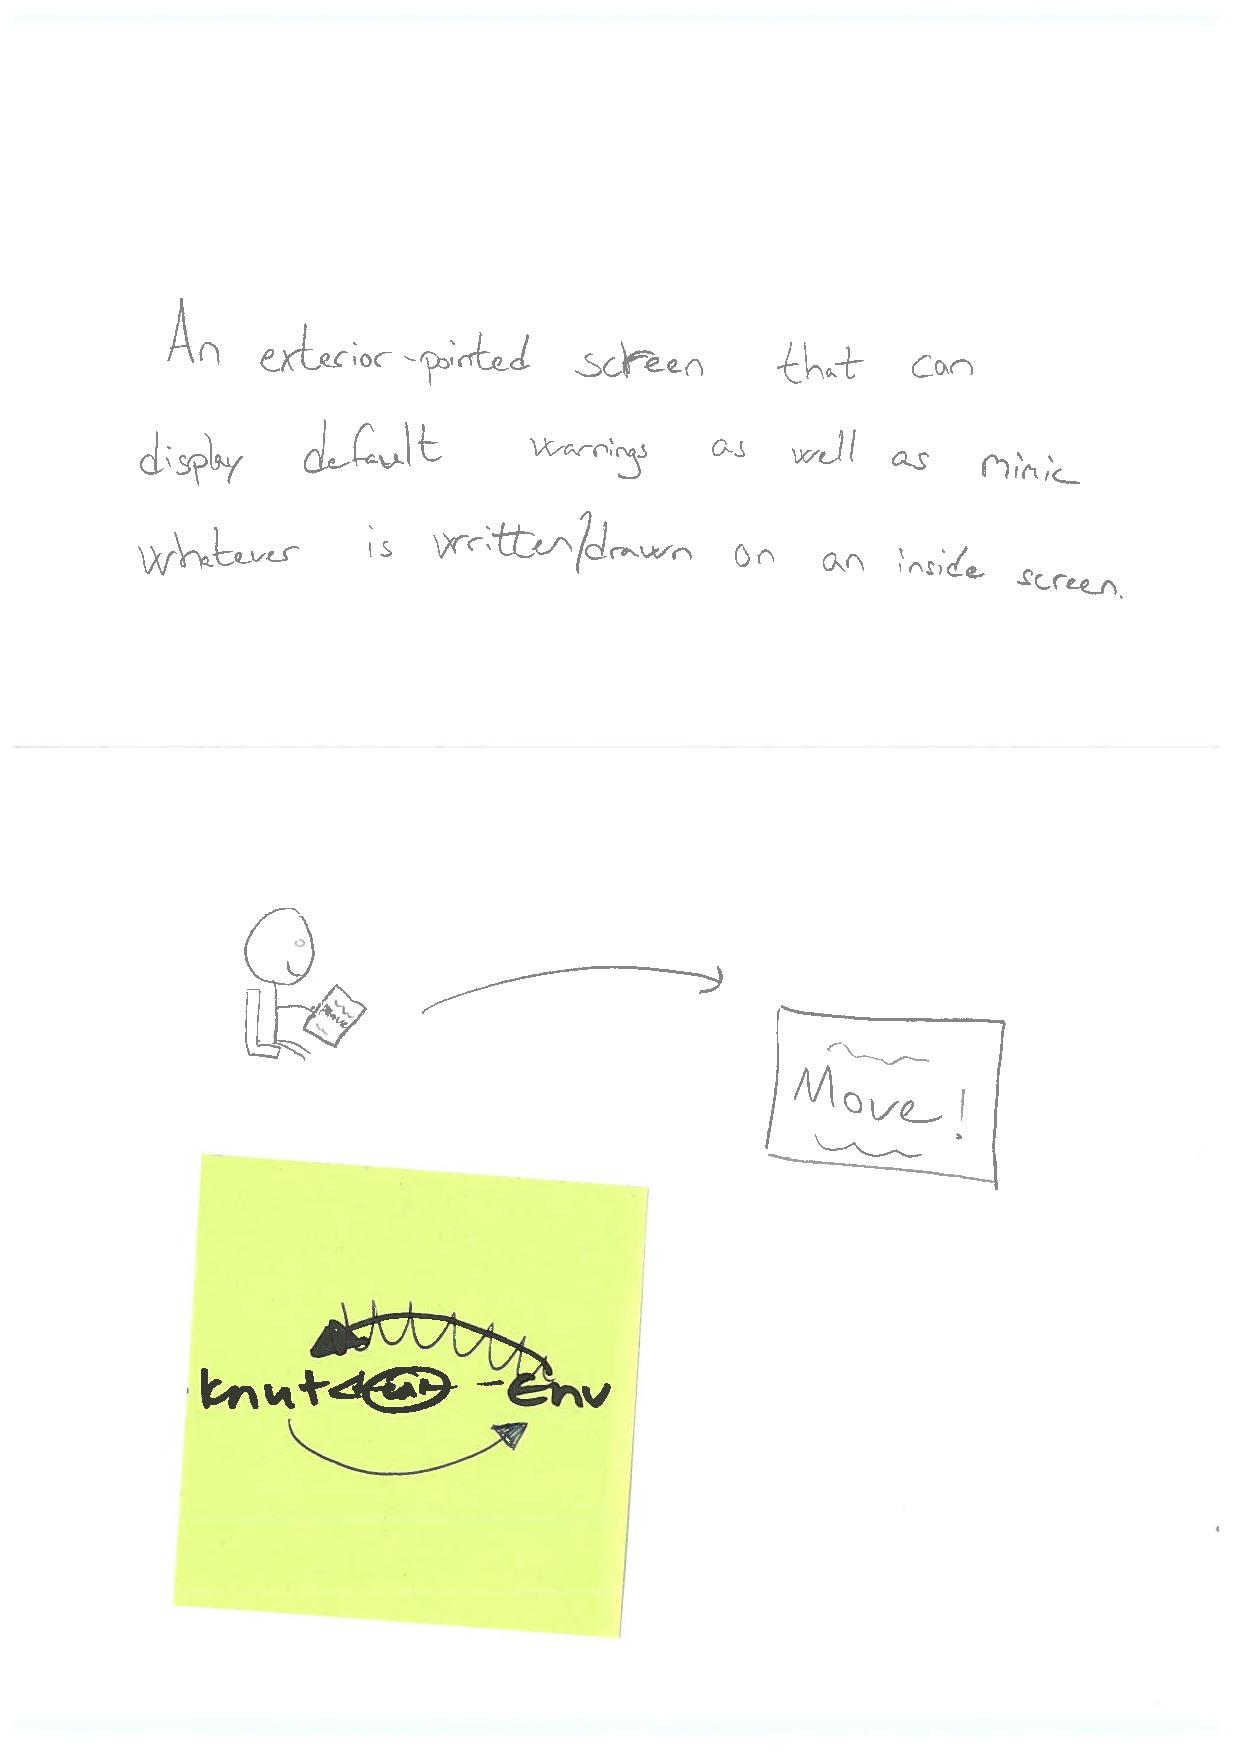 An exterior-pointed screen that can
display default warnings as well as mimic
whatever is written/drawn on an inside screen.
Move
Move!
Knut Env